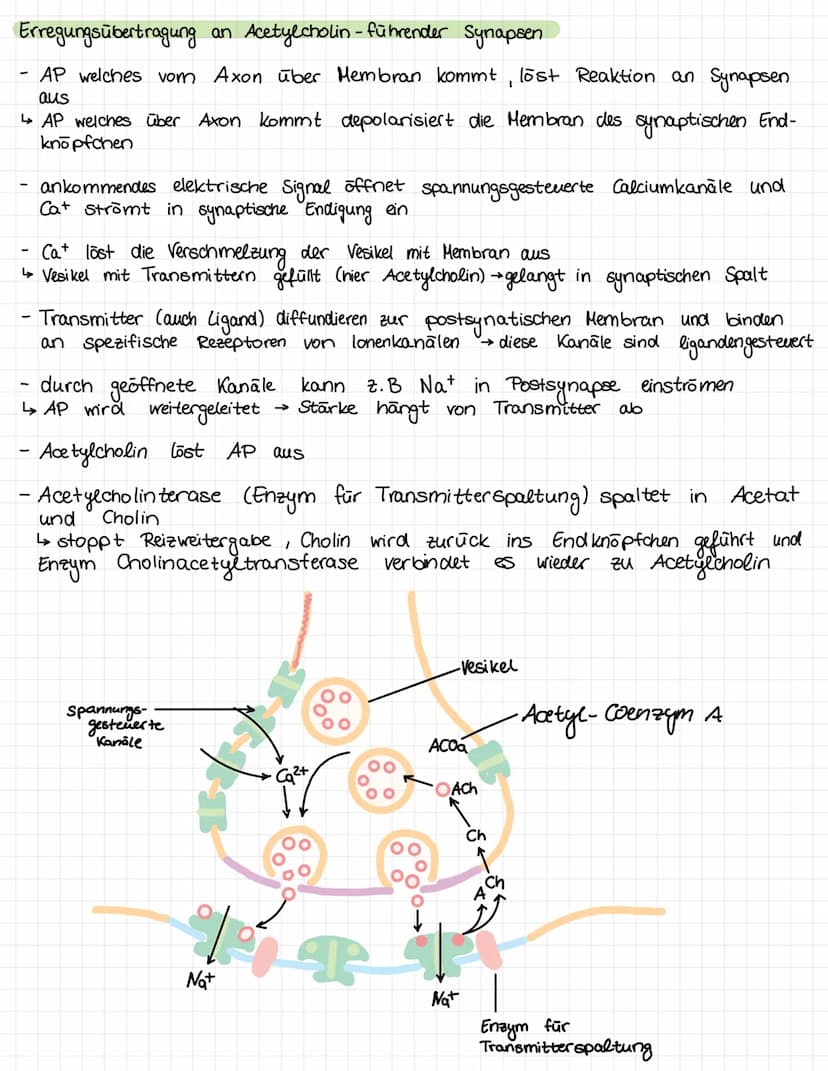 Erregungsübertragung an Acetylcholin-führender Synapsen
- AP welches vom Axon über Membran kommt, löst Reaktion an Synapsen
aus
↳ AP welches über Axon kommt depolarisiert die Membran des synaptischen End-
knöpfchen
- ankommendes elektrische Signal öffnet spannungsgesteuerte Calciumkanäle und
Ca⁺ strömt in synaptische Endigung ein
- Ca⁺ löst die Verschmelzung der Vesikel mit Membran aus
↳ Vesikel mit Transmittern gefüllt (hier Acetylcholin) → gelangt in synaptischen Spalt
- Transmitter (auch Ligand) diffundieren zur postsynatischen Membran und binden
an spezifische Rezeptoren von Ionenkanälen → diese Kanäle sind ligandengesteuert
- durch geöffnete Kanäle kann z.B Na⁺ in Postsynapse einströmen
↳ AP wird weitergeleitet → Stärke hängt von Transmitter ab
- Acetylcholin löst AP aus
- Acetylcholinterase (Enzym für Transmitterspaltung) spaltet in Acetat
und Cholin
↳ stoppt Reizweitergabe, Cholin wird zurück ins Endknöpfchen geführt und
Enzym Cholinacetyltransferase verbindet es wieder zu Acetylcholin
Vesikel
Spannungs-
gesteuerte
Kanäle
Acetyl-Coenzym A
ACoa
Ca²⁺
ACh
Ch
Ch
A
Na⁺
Na⁺
Enzym für
Transmitterspaltung